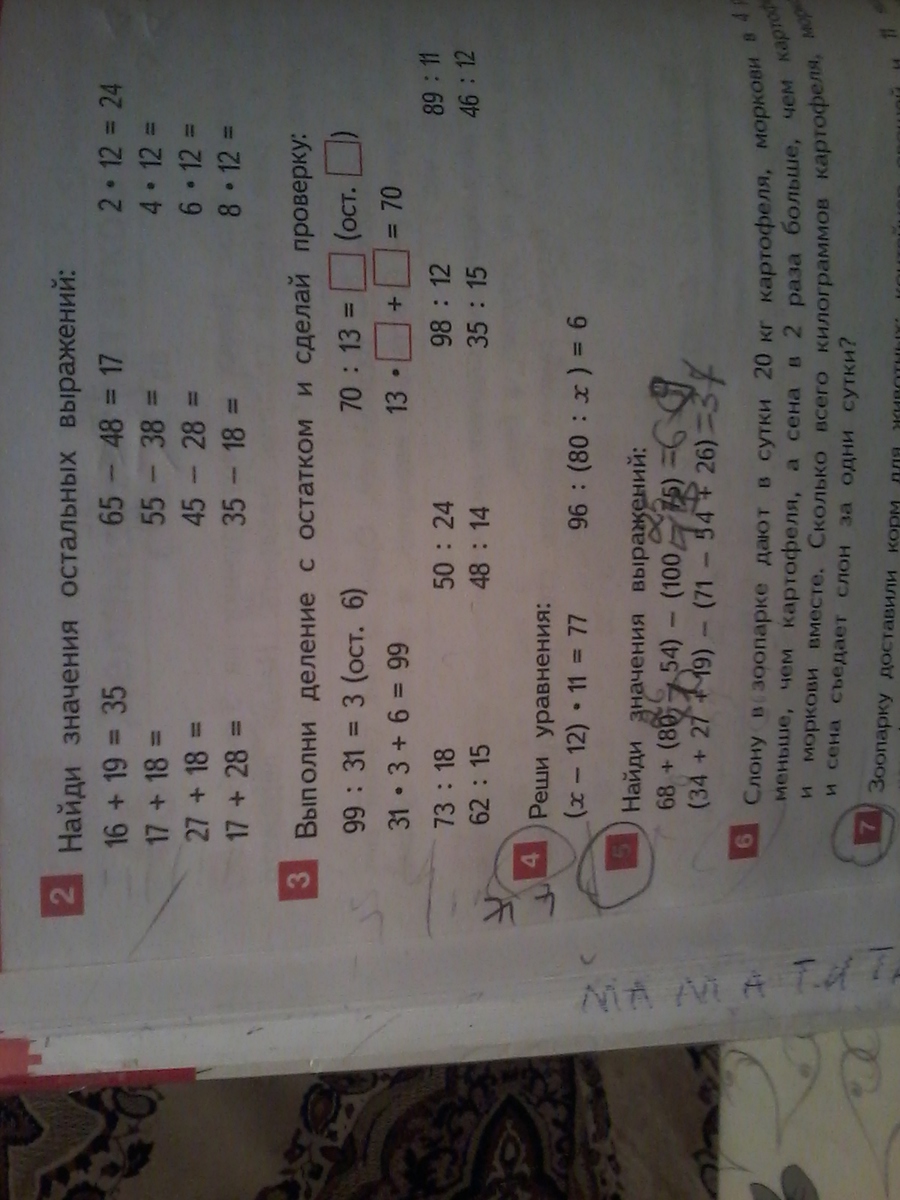 2 Найди значения остальных выражений:
16 + 19 = 35 65 − 48 = 17 2 • 12 = 24
17 + 18 = 55 − 38 = 4 • 12 =
27 + 18 = 45 − 28 = 6 • 12 =
17 + 28 = 35 − 18 = 8 • 12 =
3 Выполни деление с остатком и сделай проверку:
99 : 31 = 3 (ост. 6) 70 : 13 = □ (ост. □)
31 • 3 + 6 = 99 13 • □ + □ = 70
73 : 18 50 : 24 98 : 12 89 : 11
62 : 15 48 : 14 35 : 15 46 : 12
4 Реши уравнения:
(x − 12) • 11 = 77 96 : (80 : x) = 6
5 Найди значения выражений:
68 + (80 54) − (100
(34 + 27 + 19) − (71 − 54 + 26) = 37
6 Слону в зоопарке дают в сутки 20 кг картофеля, моркови в 4
меньше, чем картофеля, а сена в 2 раза больше, чем
и моркови вместе. Сколько всего килограммов картофеля,
и сена съедает слон за одни сутки?
7 Зоопарку доставили корм для животных
МАМА